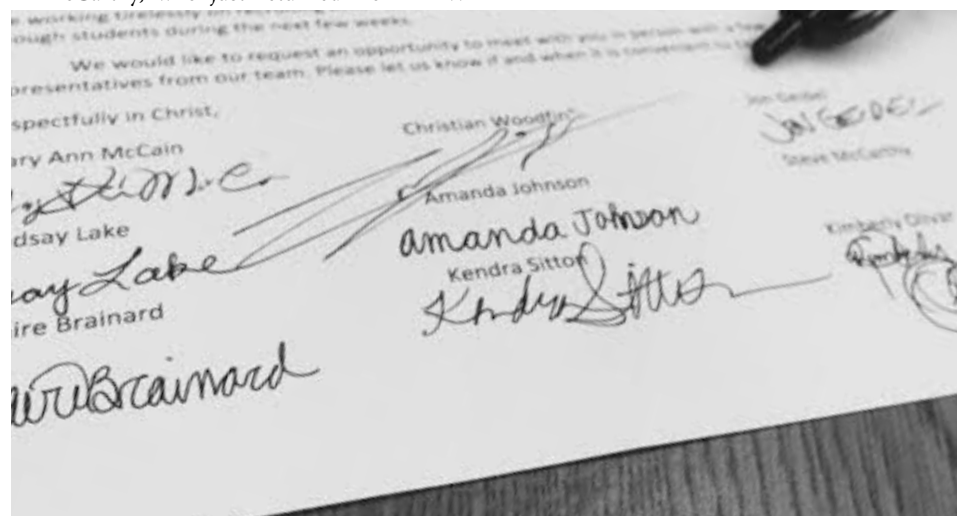 working tirelessly on
ough students during the next few weeks.
We would like to request an opportunity to meet with you in person with a few
presentatives from our team. Please let us know if and when it is convenient to
spectfully in Christ,
ary Ann McCain
dsay Lake
ay Lake
ire Brainard
Brainard
Christian Woodfin
Amanda Johnson
amanda Johnson
Kendra Sitton
Kendra Sitton
Jon Geidel
JON GEIDEL
Steve McCarthy
Kimberly Olivar
Kimberly